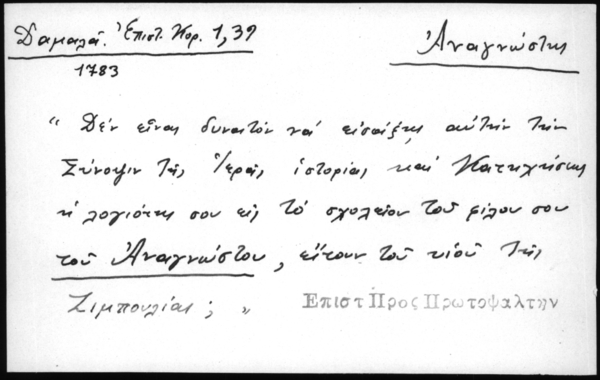 Δαμαλᾶ. Ἐπιστ. Κορ. 1,39
Ἀναγνώστης
1783
“ Δέν εἶναι δυνατόν νά εἰσάξῃς αὐτήν τήν
Σύνοψιν τῆς Ἱερᾶς ἱστορίας καί Κατηχήσεως
ἡ λογιότης σου εἰς τό σχολεῖον τοῦ φίλου σου
τοῦ Ἀναγνώστου, εἴτουν τοῦ υἱοῦ τῆς
Ζιμπουλίας; „ Επιστ Προς Πρωτοψαλτην